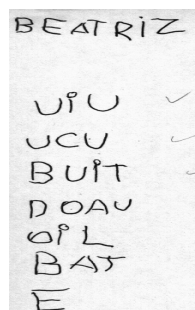 BEATRIZ
UiU
UCU
BUiT
DOAU
OiL
BAT
E